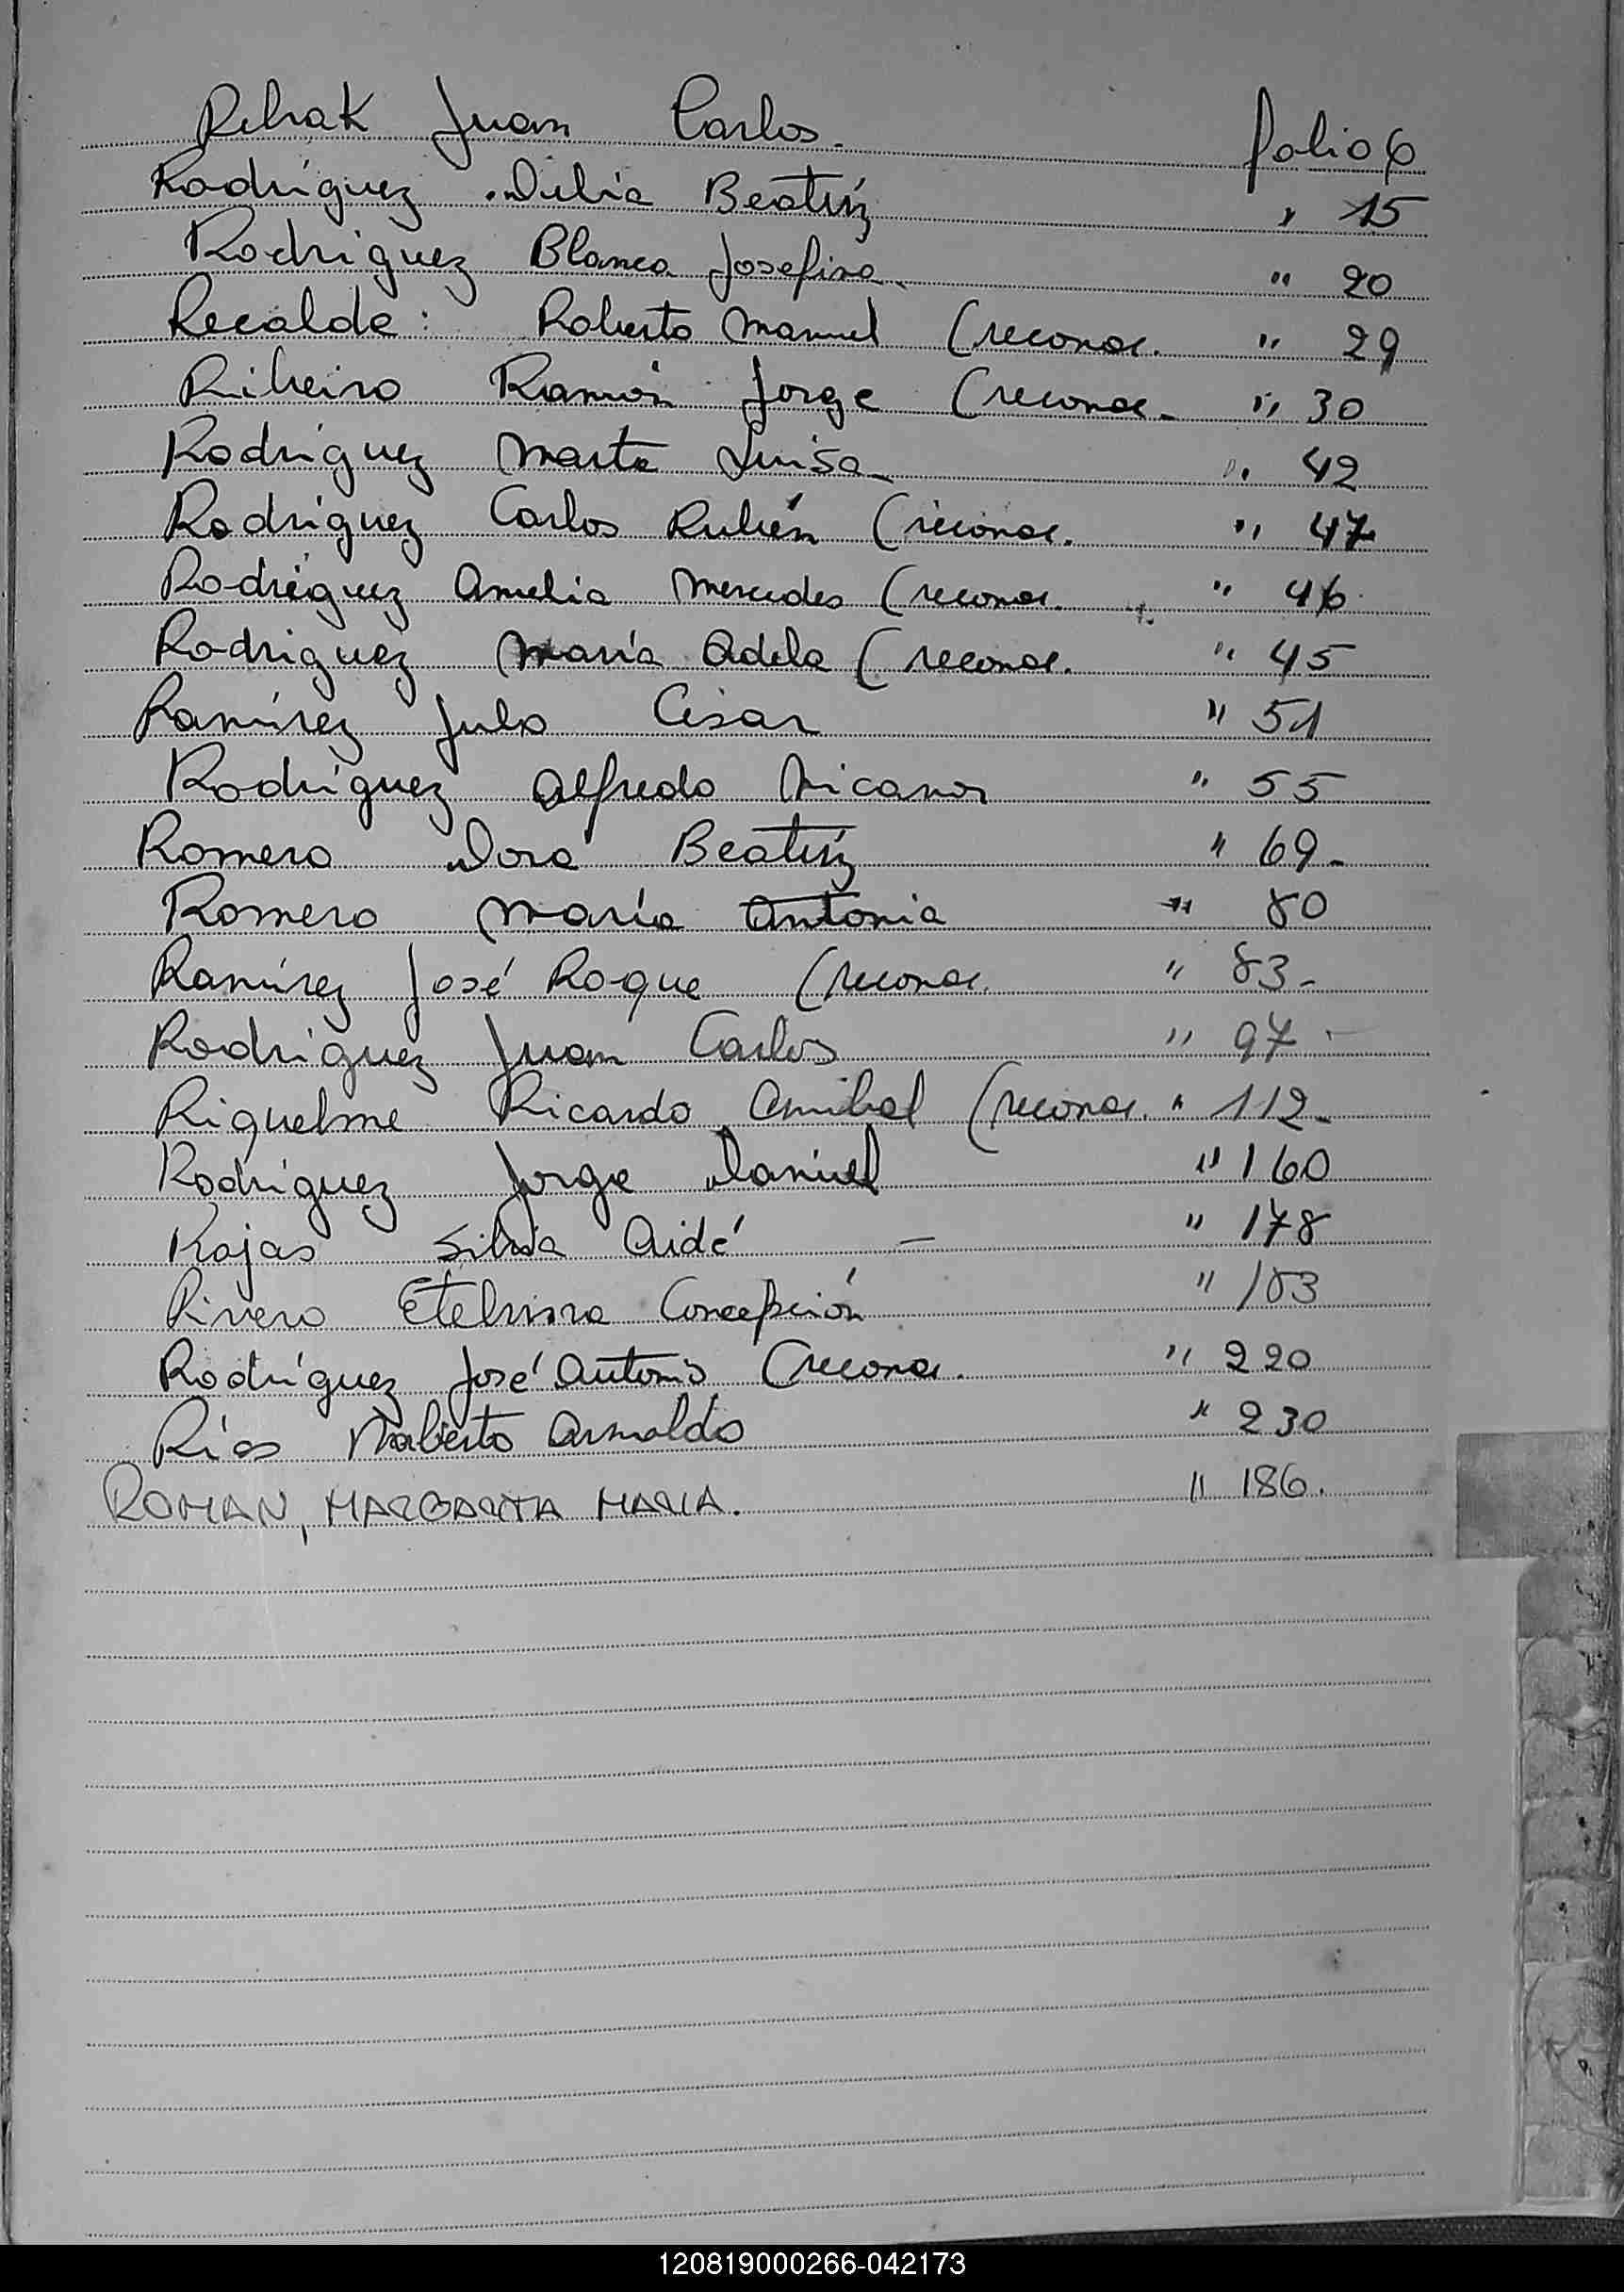 Rehak Juan Carlos. folio 6
Rodríguez Delia Beatríz " 15
Rodriguez Blanca Josefina " 20
Recalde: Roberto Manuel (reconoc. " 29
Ribeiro Ramón Jorge (reconoc. " 30
Rodríguez Marta Luisa " 42
Rodríguez Carlos Rubén (reconoc. " 47
Rodríguez Amelia Mercedes (reconoc. " 46
Rodriguez María Adela (reconoc. " 45
Ramírez Julio César " 51
Rodríguez Alfredo Nicanor " 55
Romero Dora Beatríz " 69-
Romero María Antonia " 80
Ramírez José Roque (reconoc. " 83-
Rodriguez Juan Carlos " 97-
Riquelme Ricardo Anibal (reconoc. " 112-
Rodriguez Jorge Daniel " 160
Rojas Silvia Aidé — " 178
Rivero Etelvina Concepción " 183
Rodríguez José Antonio (reconoc. " 220
Ríos Norberto Arnoldo " 230
ROMAN, MARGARITA MARIA. " 186.
120819000266-042173